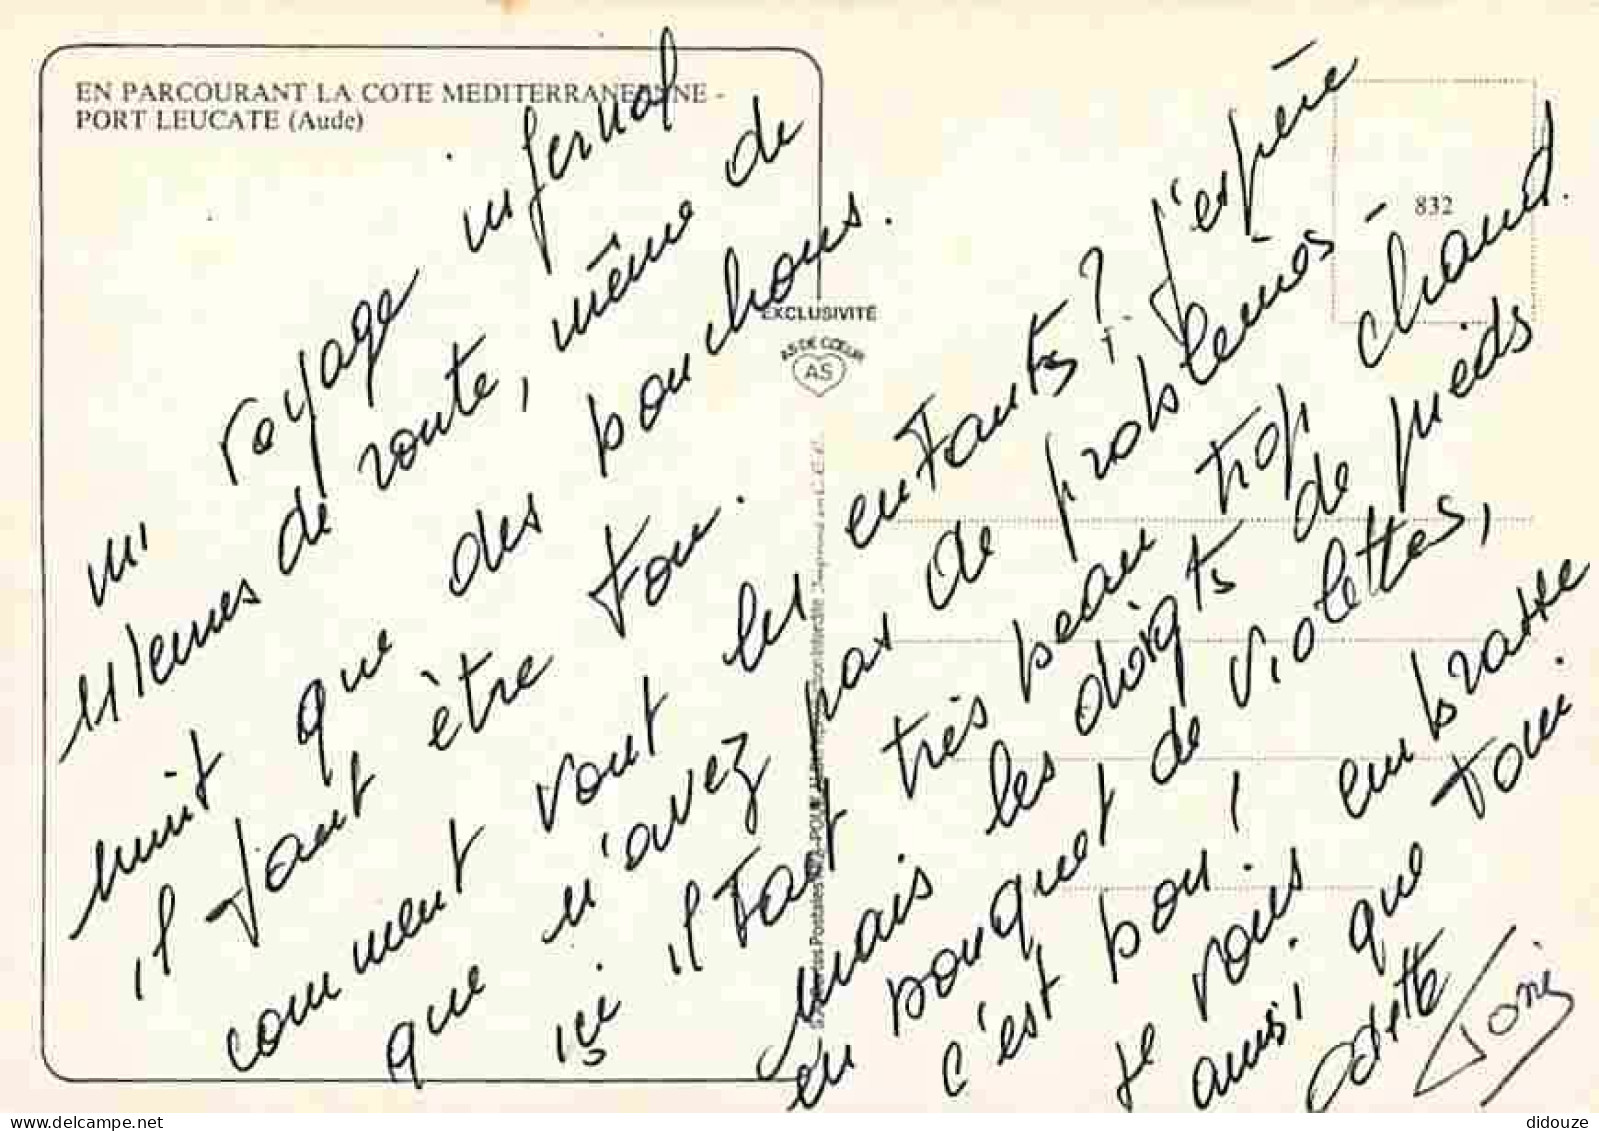 EN PARCOURANT LA COTE MEDITERRANEENNE -
PORT LEUCATE (Aude)
832
EXCLUSIVITÉ
AS DE CŒUR
AS
un voyage infernal
de route, même de
nuit que des bouchons.
il faut être fou.
comment vont les enfants ? j'espère
que n'avez pas de problèmes -
içi il fait très beau trop chaud.
mais les doigts de pieds
en bouquet de violettes,
c'est bon !
je vous embrasse
ainsi que Toni.
Odette
Toni
delcampe.net
didouze